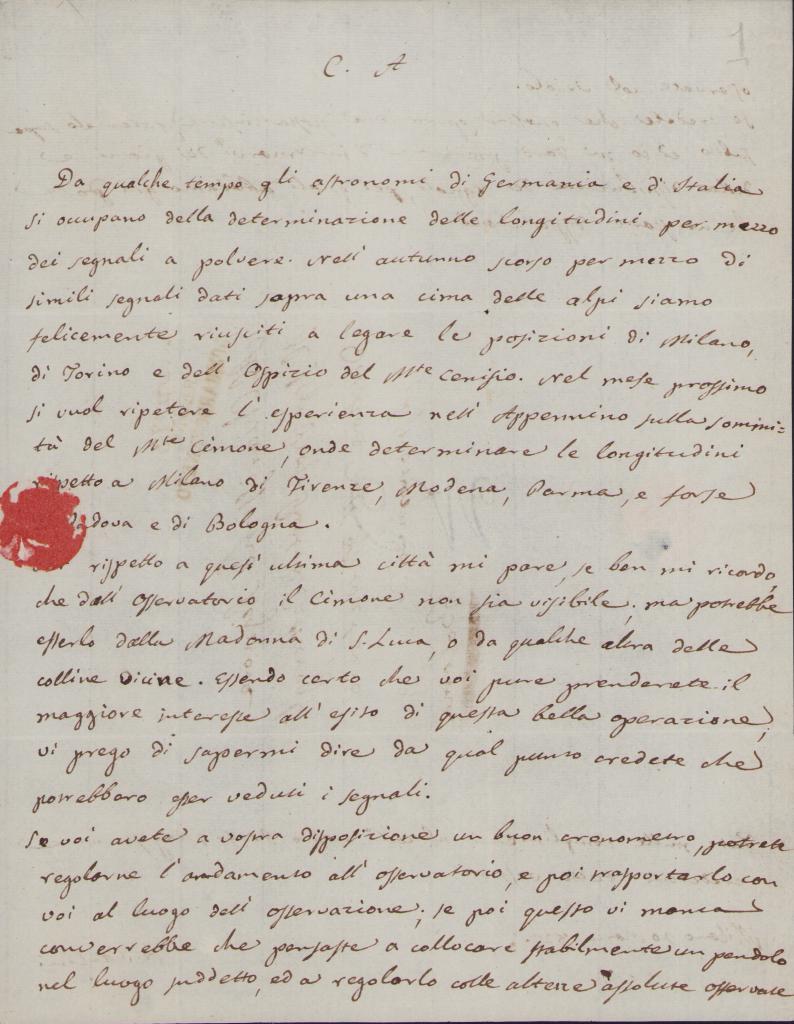 1
C. A
Da qualche tempo gli astronomi di Germania e d'Italia
si occupano della determinazione delle longitudini per mezzo
dei segnali a polvere. Nell'autunno scorso per mezzo di
simili segnali dati sopra una cima delle alpi siamo
felicemente riusciti a legare le posizioni di Milano,
di Torino e dell'Ospizio del Mte Cenisio. Nel mese prossimo
si vuol ripetere l'esperienza nell'Appennino sulla sommi=
tà del Mte Cimone, onde determinare le longitudini
rispetto a Milano di Firenze, Modena, Parma, e forse
Padova e di Bologna.
rispetto a quest'ultima città mi pare, se ben mi ricordo,
che dall'Osservatorio il Cimone non sia visibile; ma potrebbe
esserlo dalla Madonna di S. Luca, o da qualche altra delle
colline vicine. Essendo certo che voi pure prenderete il
maggiore interesse all'esito di questa bella operazione,
vi prego di sapermi dire da qual punto credete che
potrebbero esser veduti i segnali.
Se voi avete a vostra disposizione un buon cronometro, potrete
regolarne l'andamento all'osservatorio, e poi trasportarlo con
voi al luogo dell'osservazione; se poi questo vi manca
converrebbe che pensaste a collocare stabilmente un pendolo
nel luogo suddetto, ed a regolarlo colle altezze assolute osservate